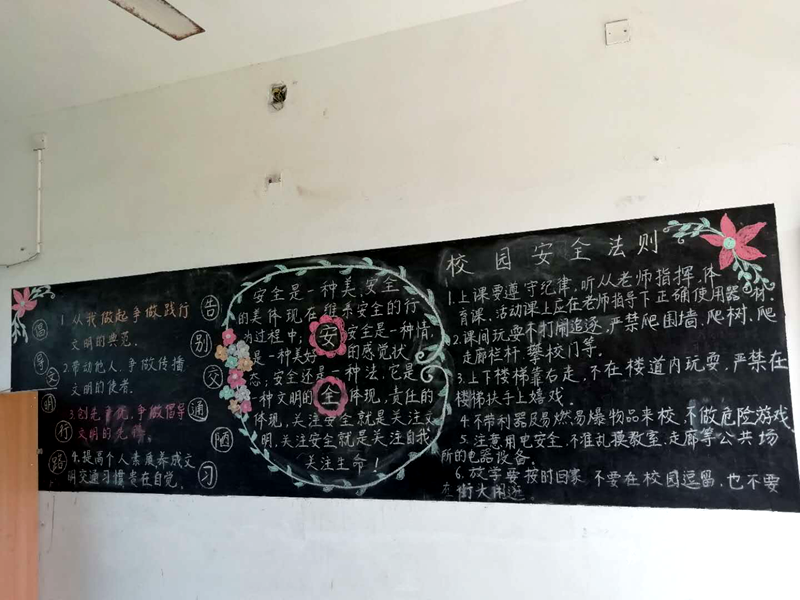 倡
导
文
明
行
路
1.从我做起争做践行
文明的典范.
2.带动他人、争做传播
文明的使者.
3.创先争优,争做倡导
文明的先锋.
4.提高个人素质养成文
明交通习惯贵在自觉.
告
别
交
通
陋
习
安全是一种美、安全
的美体现在维系安全的行
为过程中;安全是一种情
是一种美好的感觉状
态;安全还是一种法,它是
一种文明的体现,责任的
体现,关注安全就是关注文
明,关注安全就是关注自我
关注生命!
安
全
校园安全法则
1.上课要遵守纪律,听从老师指挥,体
育课、活动课上应在老师指导下正确使用器材.
2.课间玩耍不打闹追逐,严禁爬围墙、爬树、爬
走廊栏杆、攀校门等.
3.上下楼梯靠右走,不在楼道内玩耍,严禁在
楼梯扶手上嬉戏.
4.不带利器及易燃易爆物品来校,不做危险游戏.
5.注意用电安全不准乱摸教室、走廊等公共场
所的电器设备.
6.放学要按时回家不要在校园逗留,也不要
在街大闲逛.